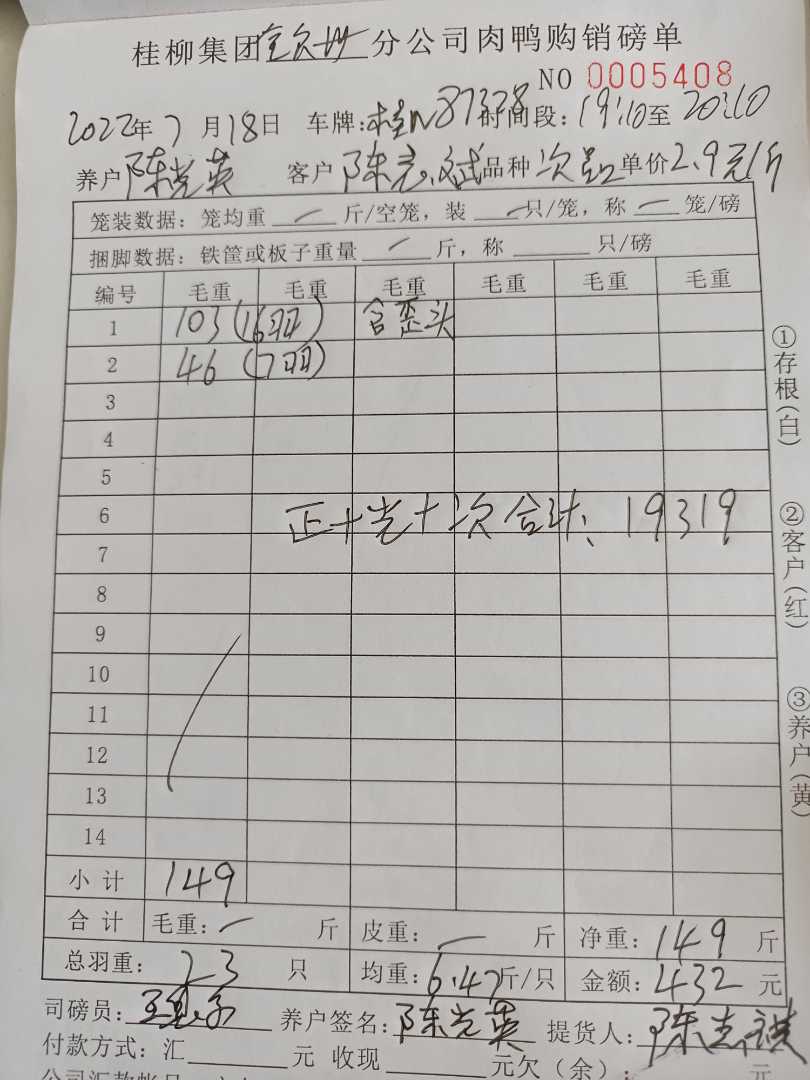 桂柳集团 分公司肉鸭购销磅单
NO 0005408
2022年7月18日 车牌: 桂N87328 时间段: 19:10至20:10
养户 陈光英 客户 陈志 品种 次品 单价 2.9元/斤
笼装数据: 笼均重 — 斤/空笼, 装 — 只/笼, 称 — 笼/磅
捆脚数据: 铁筐或板子重量 — 斤, 称 只/磅
编号 毛重 毛重 毛重 毛重 毛重 毛重
1 103(16羽) 含歪头
2 46(7羽)
3
4
5
6 正+光+次合计: 19319
7
8
9
10
11
12
13
14
小计 149
合计 毛重: — 斤 皮重: — 斤 净重: 149 斤
总羽重: 23 只 均重: 6.47斤/只 金额: 432 元
司磅员: 养户签名: 陈光英 提货人: 陈志
付款方式: 汇 元 收现 元欠(余): 元
①存根(白)
②客户(红)
③养户(黄)